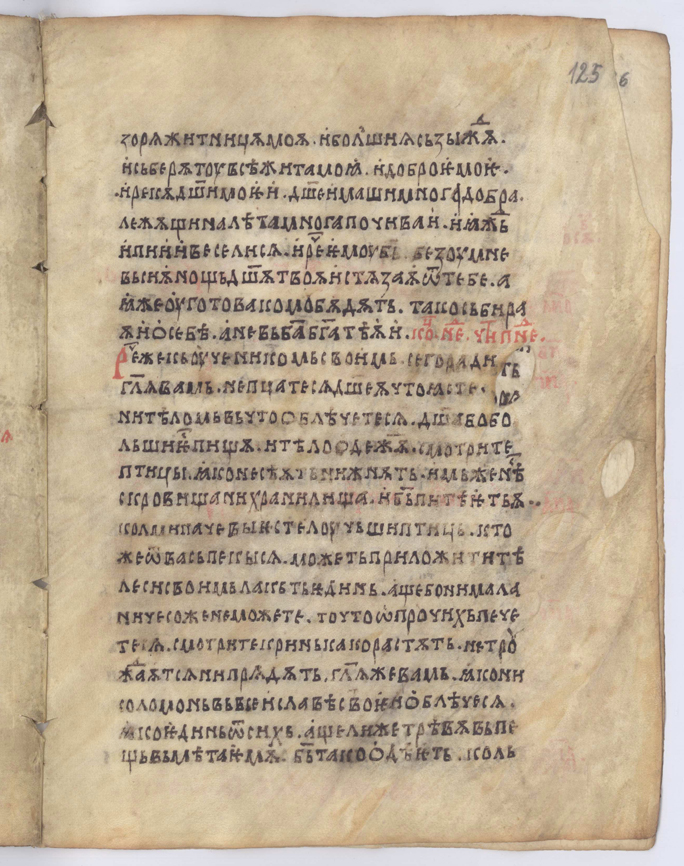 125 6
зорѫ житницѫ моѧ . и болшиѧ съзыждѫ .
и съберѫ тоу всѣ жита моꙗ . и доброѥ моѥ .
и рекѫ дш҃и моѥи . дш҃е имаши много добра
лежѧщи на лѣта многа почиваи . и ꙗждь
и пии и веселисѧ . и реч҃ ѥмоу б҃ъ . безоумне
въ сиѫ нощь дш҃ѫ твоѫ истѧзаѧ ѿ тебе . а
ꙗже оуготова комоу бѫдѫть . тако събира
ѧи ѡ себѣ . а не въ б҃а б҃гатѣѧи . ко҃ . не҃ .
Реч҃е же къ оученикомь своимь . сего ради
гл҃ѧ вамь . не пцѣтесѧ дш҃еѧ что ꙗсте
ни тѣломь въ что облѣчетесѧ . дш҃а бо бо
льши ѥ пищѧ . и тѣло одеждѧ . смотрите
птицы . ꙗко не сѣѧть ни жнѧть . имьже нѣ
скровища ни хранилища . и б҃ъ питѣѥть ѧ
колми паче вы ѥсте лоучьши птиць . кто
же ѿ вась пекыисѧ . можеть приложити тѣ
леси своимь лакеть ѥдинь . аще бо ни мала
ничесоже не можете . то что ѡ прочихъ пече
тесѧ . смотрите кринь како растѧть . не троу
ждаѧтсѧ ни прѧдѧть , гл҃ѧ же вамь . ꙗко ни
соломонь въ всеи славѣ своѥи облѣчесѧ .
ꙗко ѥдинь ѿ сихъ . аще ли же трѣвѫ въ пе
щь вьмѣтаѥмѫ . б҃ъ тако одѣѥть . коль